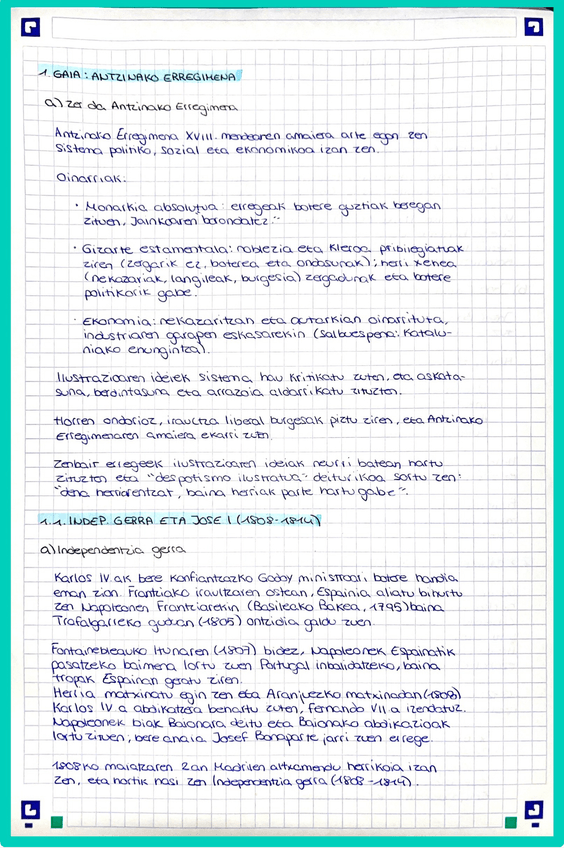 1. GAIA: ANTZINAKO ERREGIMENA
a) Zer da Antzinako Erregimena
Antzinako Erregimena XVIII. mendearen amaiera arte egon zen
sistema politiko, sozial eta ekonomikoa izan zen.
Oinarriak:
· Monarkia absolutua: erregeak botere guztiak beregan
zituen, Jainkoaren borondatez."
· Gizarte estamentala: noblezia eta kleroa pribilegiatuak
ziren (zergarik ez, boterea eta ondasunak); herri xehea
(nekazariak, langileak, burgesia) zergadunak eta botere
politikorik gabe.
· Ekonomia: nekazaritzan eta autarkian oinarrituta,
industriaren garapen eskasarekin (salbuespena: Katalu-
niako ehungintza).
Ilustrazioaren ideiek sistema hau kritikatu zuten, eta askata-
suna, berdintasuna eta arrazoia aldarrikatu zituzten.
Horren ondorioz, iraultza liberal burgesak piztu ziren, eta Antzinako
Erregimenaren amaiera ekarri zuten.
Zenbait erregeek ilustrazioaren ideiak neurri batean hartu
zituzten eta "despotismo ilustratua" deiturikoa sortu zen:
"dena herriarentzat, baina herriak parte hartu gabe".
1.1. INDEP. GERRA ETA JOSE I (1808-1814)
a) Independentzia gerra
Karlos IV.ak bere konfiantzazko Godoy ministroari botere handia
eman zion. Frantziako iraultzaren ostean, Espainia aliatu bihurtu
zen Napoleonen Frantziarekin (Basileako Bakea, 1795) baina
Trafalgarreko gudan (1805) ontzidia galdu zuen.
Fontainebleauko Itunaren (1807) bidez, Napoleonek Espainiatik
pasatzeko baimena lortu zuen Portugal inbaditzeko, baina
tropak Espainian geratu ziren.
Herria matxinatu egin zen eta Aranjuezko matxinadan (1808)
Karlos IV.a abdikatzera behartu zuten, Fernando VII.a izendatuz.
Napoleonek biak Baionara deitu eta Baionako abdikazioak
lortu zituen; bere anaia Josef Bonaparte jarri zuen errege.
1808ko maiatzaren 2an Madrilen altxamendu herrikoia izan
zen, eta hortik hasi zen Independentzia gerra (1808-1814).